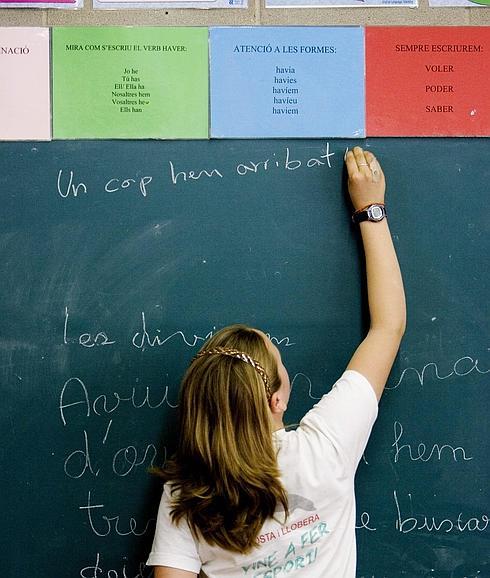 NACIÓ
MIRA COM S'ESCRIU EL VERB HAVER:
Jo he
Tú has
Ell/ Ella ha
Nosaltres hem
Vosaltres heu
Ells han
ATENCIÓ A LES FORMES:
havia
havies
havíem
havíeu
haviem
SEMPRE ESCRIUREM:
VOLER
PODER
SABER
Un cop hem arribat
Les
hem
buscar
OSTA i LLOBERA
VINE A FER
ESPORT!